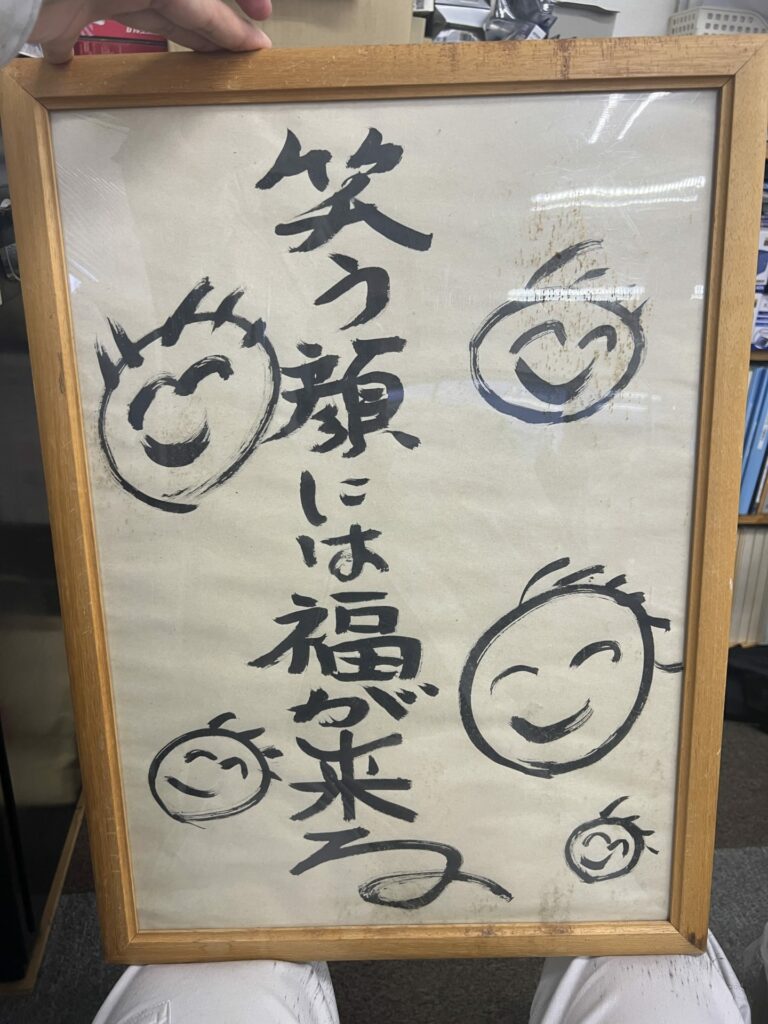 笑う顔には福が来る